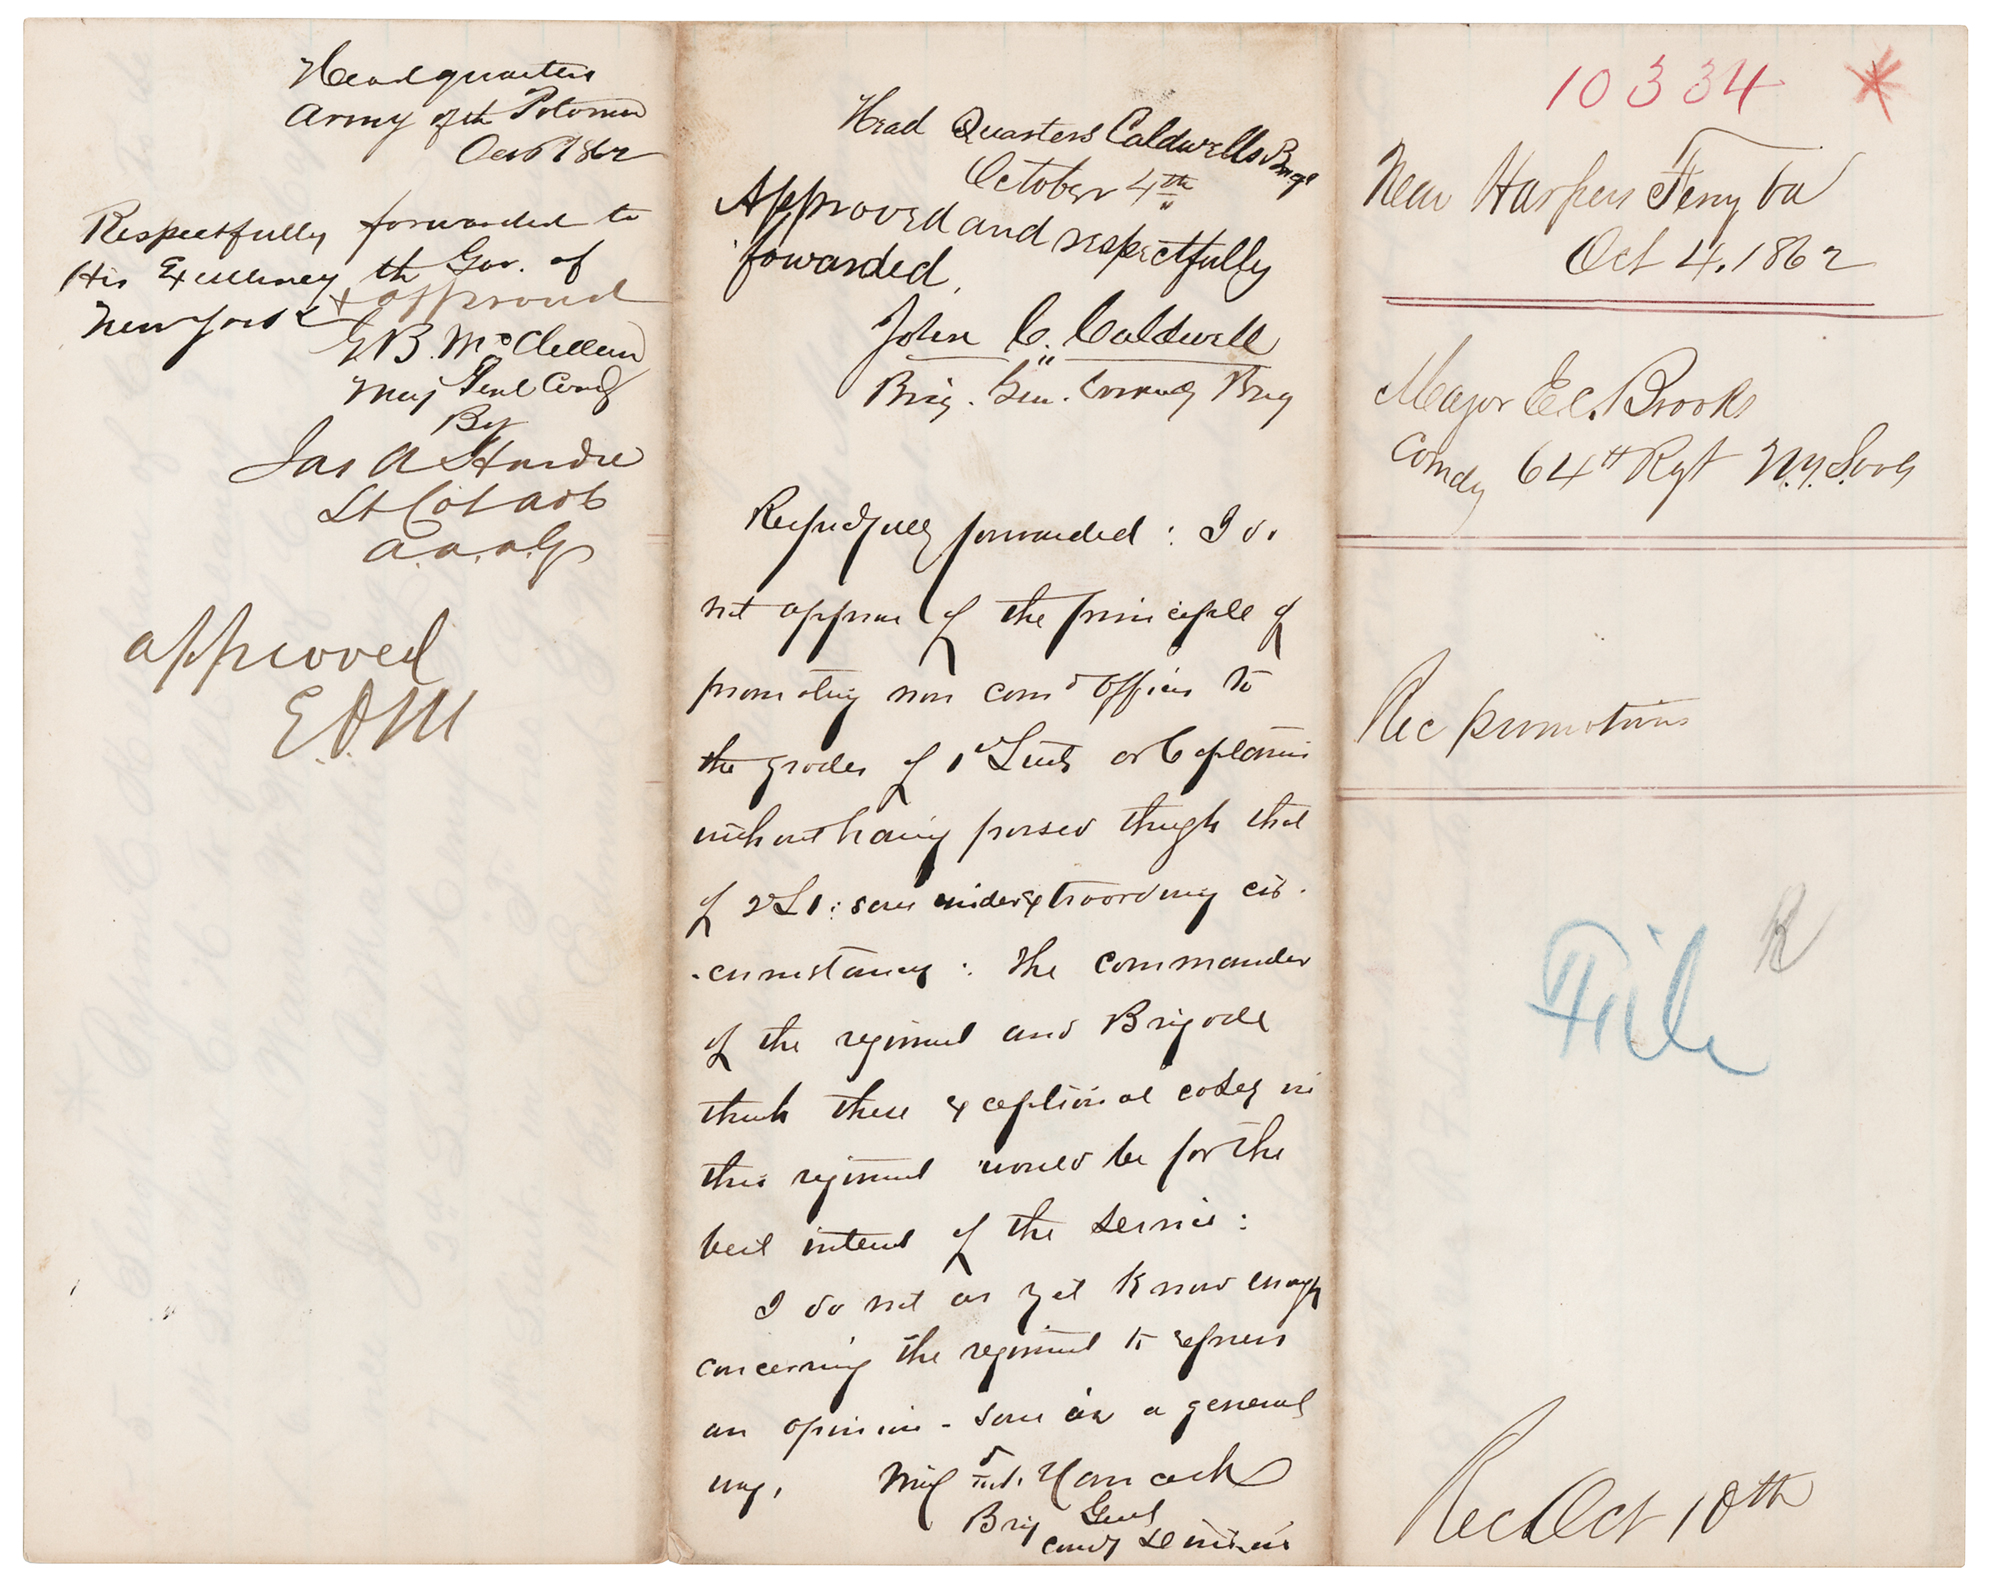 Headquarters
Army of the Potomac
Oct 1862
Respectfully forwarded to
His Excellency the Gov. of
New York & approved
G B. McClellan
Maj Genl Comdg
By
Jas A Hardie
Lt Col ADC
A.A.A.G
approved
E.D.M
Head Quarters Caldwells Brig
October 4th
Approved and respectfully
forwarded.
John C. Caldwell
Brig. Gen. Comndg Brig
Respectfully forwarded: I do
not approve of the principle of
promoting non comd officers to
the grades of 1st Lieuts or Captains
without having passed through that
of 2d Lt: save under extraordinary cir-
-cumstances: The commander
of the regiment and Brigade
think these exceptional cases in
this regiment would be for the
best interest of the service:
I do not as yet know enough
concerning the regiment to express
an opinion - save in a general
way. Winf d Sct. Hancock
Brig Genl
Comdg Division
10334
Near Harpers Ferry Va
Oct 4. 1862
Major E.C. Brooks
Comdg 64th Rgt N.Y. Vols
Rec promotions
File
R
Recd Oct 10th